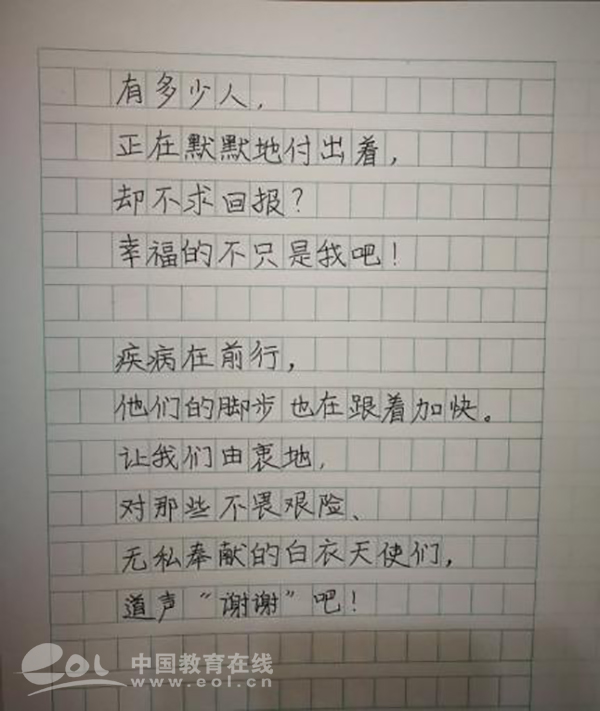 有多少人，
正在默默地付出着，
却不求回报？
幸福的不只是我吧！
疾病在前行，
他们的脚步也在跟着加快。
让我们由衷地，
对那些不畏艰险、
无私奉献的白衣天使们，
道声“谢谢”吧！
eol 中国教育在线
www.eol.cn